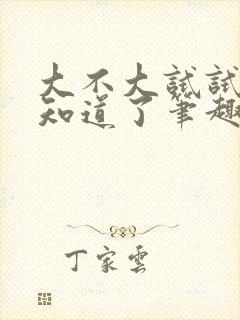 大不大試試
知道了筆趣
丁家雲